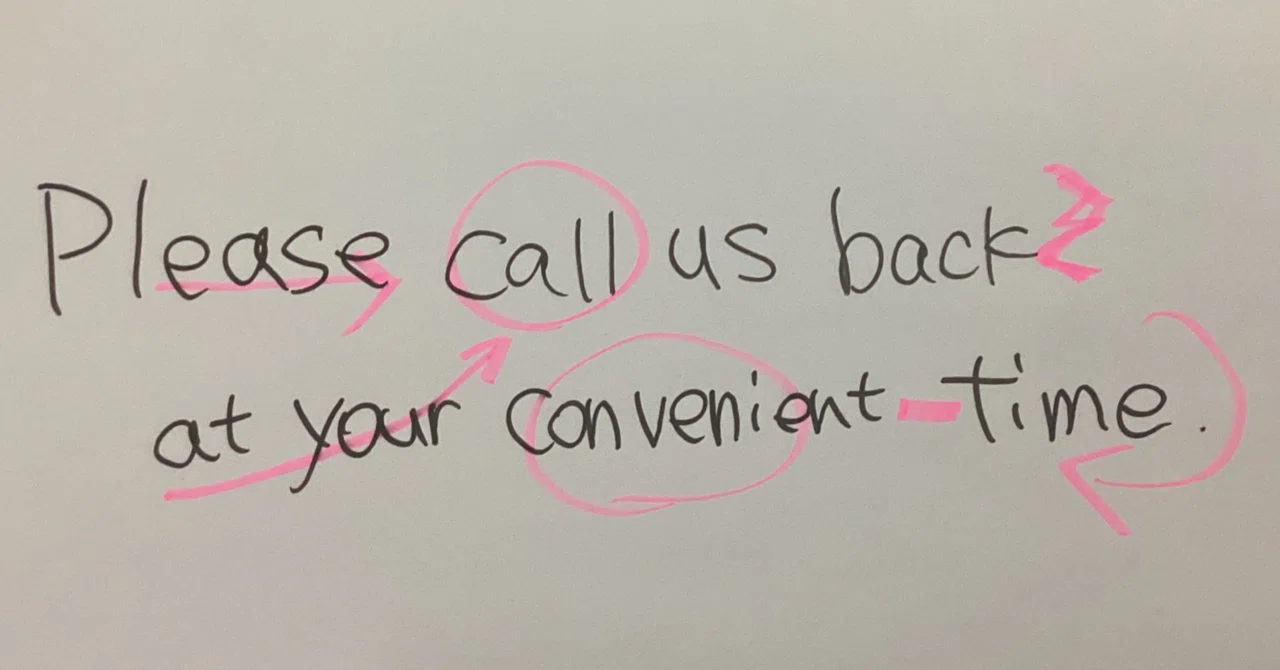 Please call us back
at your convenient time.